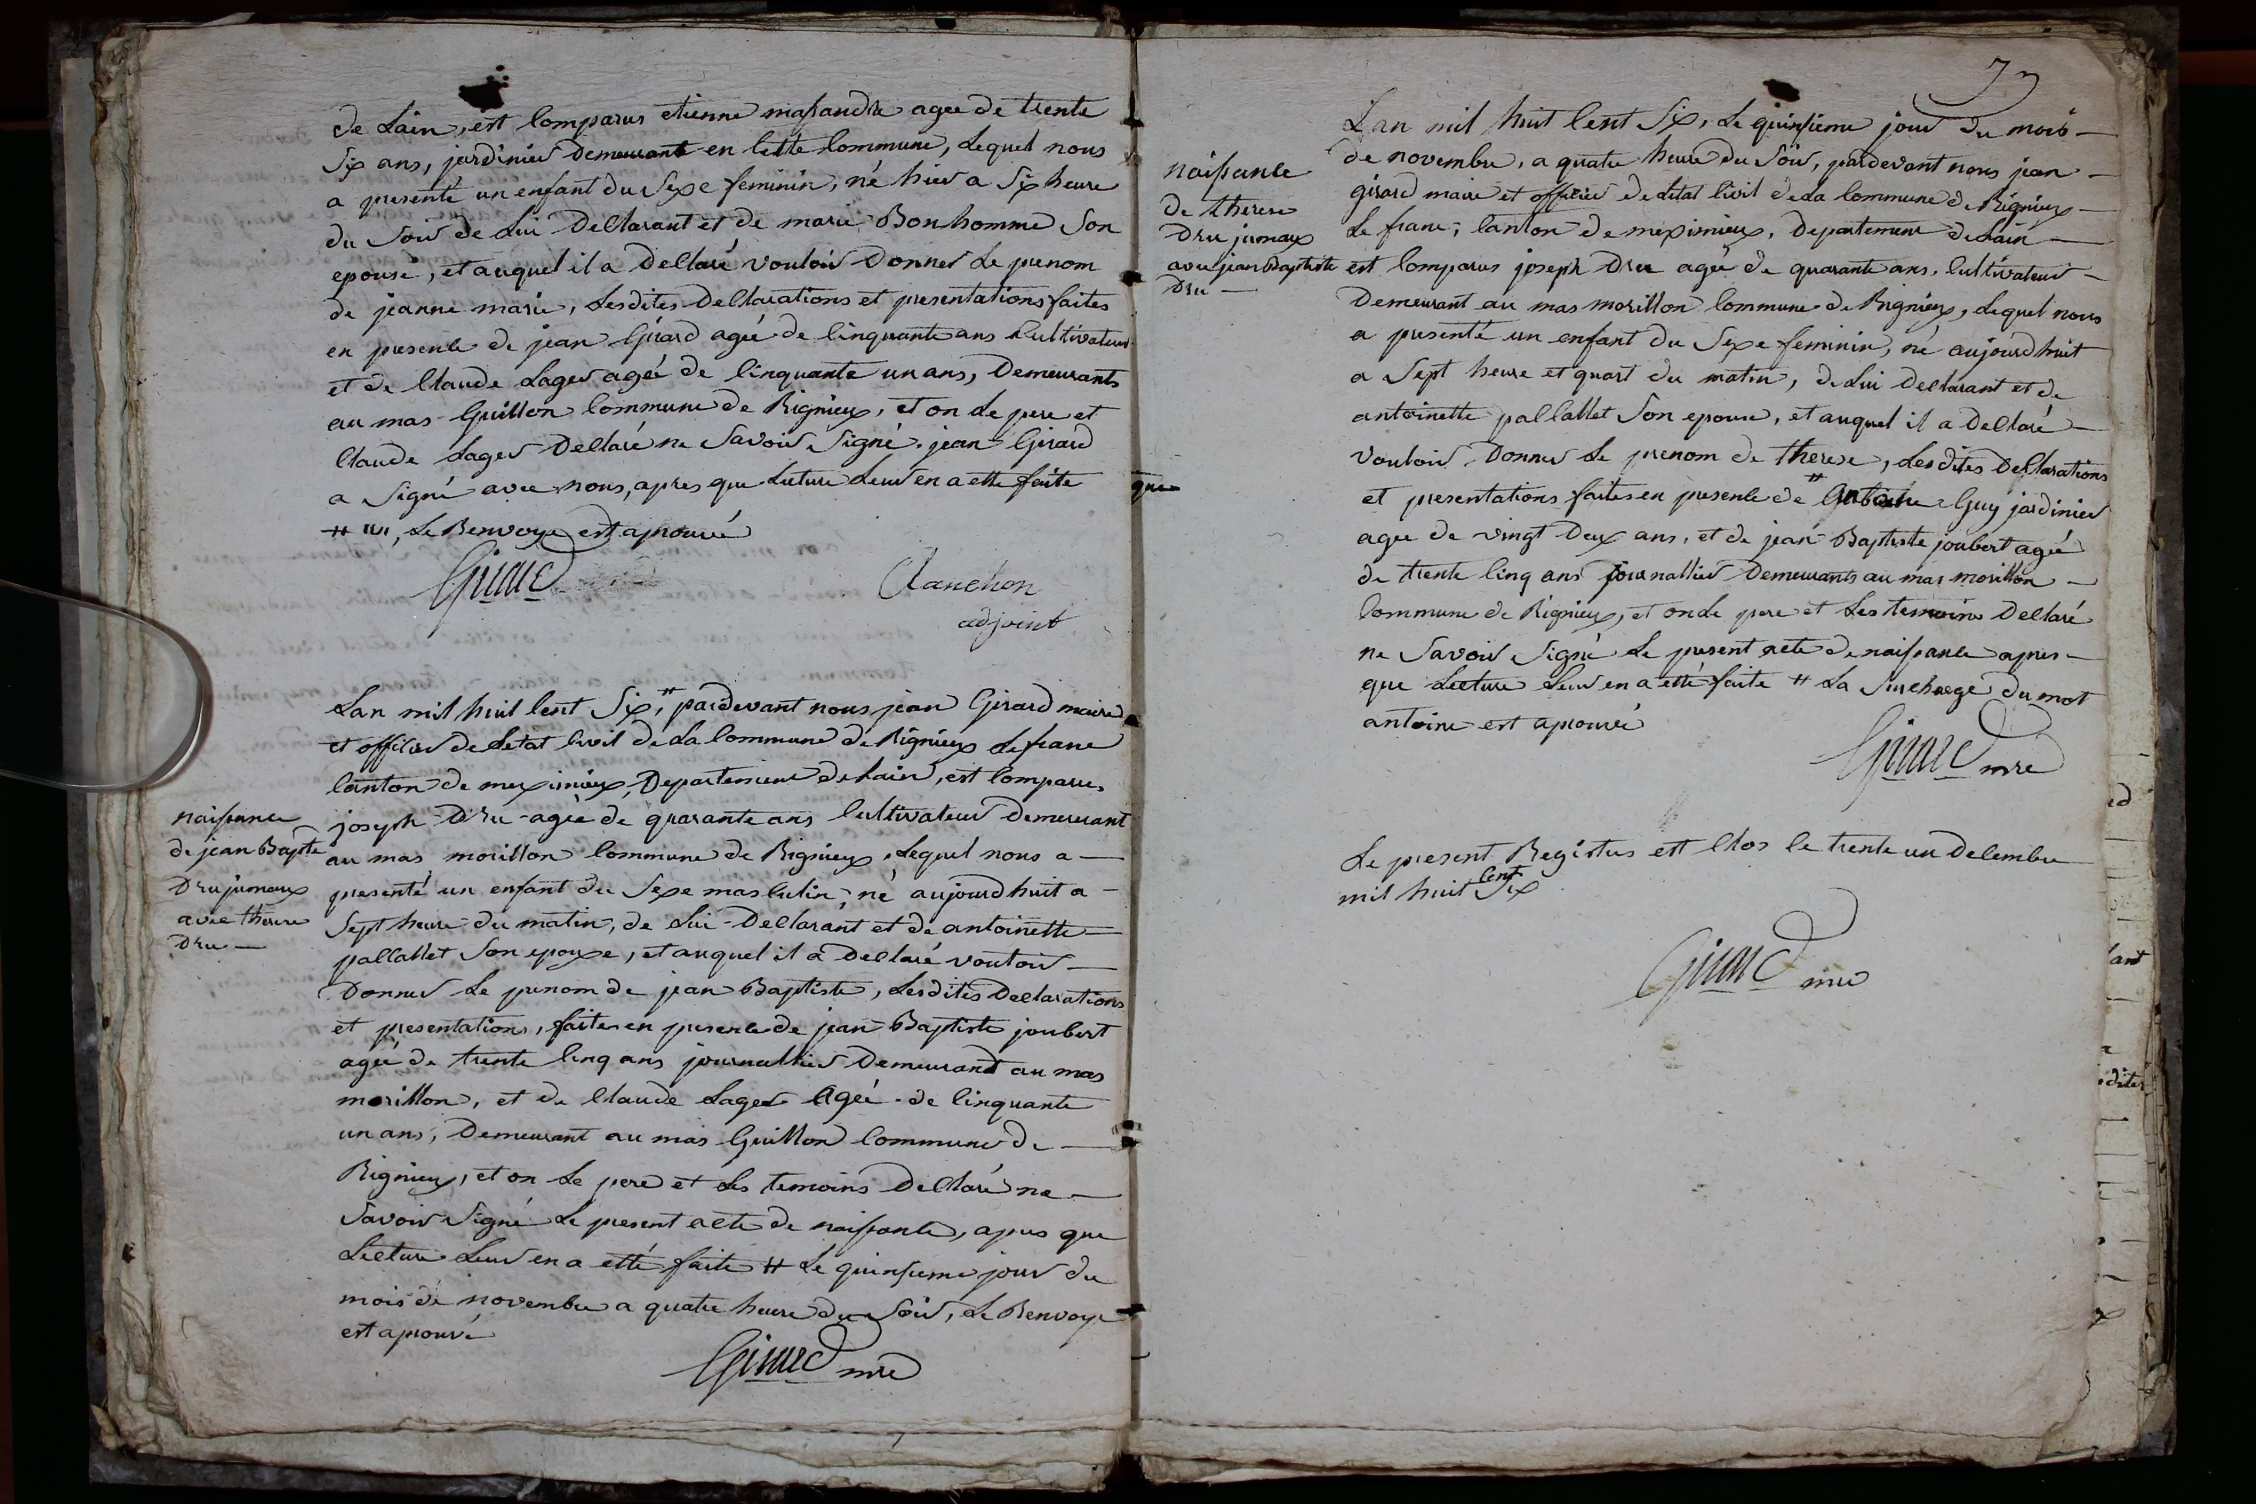 de Lain, est Comparus etienne massandre agee de trente
Six ans, jardinier Demeurant en Cette Commune, Lequel nous
a presenté un enfant du Sexe feminin, né hier a Six heure
du Soir de Lui Declarant et de marie Bonhomme Son
epouse, et auquel il a Declaré vouloir Donner Le prenom
de jeanne marie, Lesdites Declarations et presentations faites
en presence de jean Girard agée de Cinquante ans Cultivateur
et de Claude Lager agéé de Cinquante un ans, Demeurants
au mas Guillon Commune de Rignieux, et on Le pere et
Claude Lager Declaré ne Savoir Signé. jean Girard
a Signé avec nous, apres que Lecture Leur en a etté faite
Le Renvoye est aprouvé
Girard
Clanchon
adjoint
Lan mil huit Cent Six, # pardevant nous jean Girard maire
et officier de Letat Civil de La Commune de Rignieux Lefranc
Canton de meximieux, Departement de Lain, est Comparu,
naissance
de jean Bapte
Dru jumaux
avec therese
Dru —
joseph Dru agéé de quarante ans Cultivateur Demeurant
au mas morillon Commune de Rignieux, Lequel nous a —
presenté un enfant du Sexe masculin, né aujourdhuit a —
Sept heure du matin, de Lui Declarant et de antoinette —
pallallet Son epouxe, et auquel il a Declaré vouloir —
Donner Le prenom de jean Baptiste, Lesdites Declarations
et presentations, faites en presence de jean Baptiste joubert
agéé de trente Cinq ans journallier Demeurand au mas
morillon, et de Claude Lager agéé de Cinquante
un ans, Demeurant au mas Guillon Commune de —
Rignieux, et on Le pere et Les temoins Declaré ne —
Savoir Signé Le present acte de naissance, apres que
Lecture Leur en a etté faite # Le quinsieme jour du
mois de novembre a quatre heure du Soir, Le Renvoye
est aprouvé
Girard mre
73
naissance
de therese
Dru jumaux
avec jean Baptiste
Dru —
Lan mil huit Cent Six, Le quinsieme jour du mois —
de novembre, a quatre heure du Soir, pardevant nous jean —
girard maire et officier de Letat Civil de La Commune de Rignieux —
Le franc, Canton de meximieux, Departement de Lain —
est Comparus joseph Dru agéé de quarante ans, Cultivateur —
Demeurant au mas morillon Commune de Rignieux, Lequel nous
a presenté un enfant du Sexe feminin, né aujourdhuit
a Sept heure et quart du matin, de Lui Declarant et de
antoinette pallallet Son epouse, et auquel il a Declaré —
vouloir Donner Le prenom de therese, Lesdites Declarations
et presentations faites en presence de # antoine Guy jardinier
agee de vingt Deux ans, et de jean Baptiste joubert agéé
de trente Cinq ans journallier Demeurants au mas morillon —
Commune de Rignieux, et on Le pere et Les temoins Declaré
ne Savoir Signé Le present acte de naissance apres —
que Lecture Leur en a etté faite # La Surcharge du mot
antoine est aprouvé
Girard mre
Le present Registres est Clos le trente un Decembre
mil huit Cent Six
Girard mre